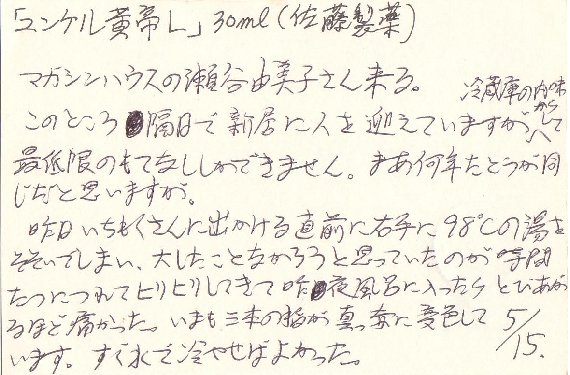 「ユンケル黄帝L」30ml(佐藤製薬)
マガジンハウスの瀬谷由美子さん来る。
冷蔵庫の内味からして
このところ隔日で新居に人を迎えていますが、
最低限のもてなししかできません。まあ何年たとうが同
じだと思いますが。
昨日いちもくさんに出かける直前に右手に98℃の湯を
そそいでしまい、大したことなかろうと思っていたのが時間
たつにつれてヒリヒリしてきて昨夜風呂に入ったらとびあが
るほど痛かった。いまも三本の指が真っ赤に変色して
います。すぐ水で冷やせばよかった。
5/15.